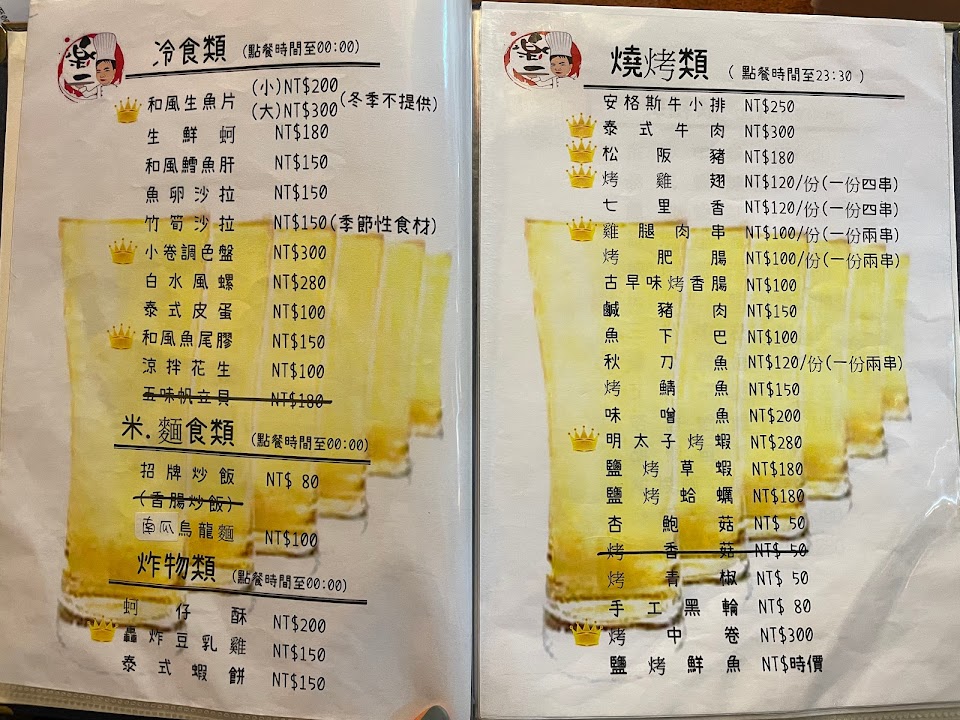 冷食類 (點餐時間至00:00)
和風生魚片 (小)NT$200 (大)NT$300 (冬季不提供)
生鮮蚵 NT$180
和風鱈魚肝 NT$150
魚卵沙拉 NT$150
竹筍沙拉 NT$150(季節性食材)
小卷調色盤 NT$300
白水風螺 NT$280
泰式皮蛋 NT$100
和風魚尾膠 NT$150
涼拌花生 NT$100
五味帆立貝 NT$180
米.麵食類 (點餐時間至00:00)
招牌炒飯 NT$ 80
(香腸炒飯)
南瓜烏龍麵 NT$100
炸物類 (點餐時間至00:00)
蚵仔酥 NT$200
轟炸豆乳雞 NT$150
泰式蝦餅 NT$150
燒烤類 ( 點餐時間至23:30 )
安格斯牛小排 NT$250
泰式牛肉 NT$300
松阪豬 NT$180
烤雞翅 NT$120/份(一份四串)
七里香 NT$120/份(一份四串)
雞腿肉串 NT$100/份(一份兩串)
烤肥腸 NT$100/份(一份兩串)
古早味烤香腸 NT$100
鹹豬肉 NT$150
魚下巴 NT$100
秋刀魚 NT$120/份(一份兩串)
烤鯖魚 NT$150
味噌魚 NT$200
明太子烤蝦 NT$280
鹽烤草蝦 NT$180
鹽烤蛤蠣 NT$180
杏鮑菇 NT$ 50
烤香菇 NT$ 50
烤青椒 NT$ 50
手工黑輪 NT$ 80
烤中卷 NT$300
鹽烤鮮魚 NT$時價